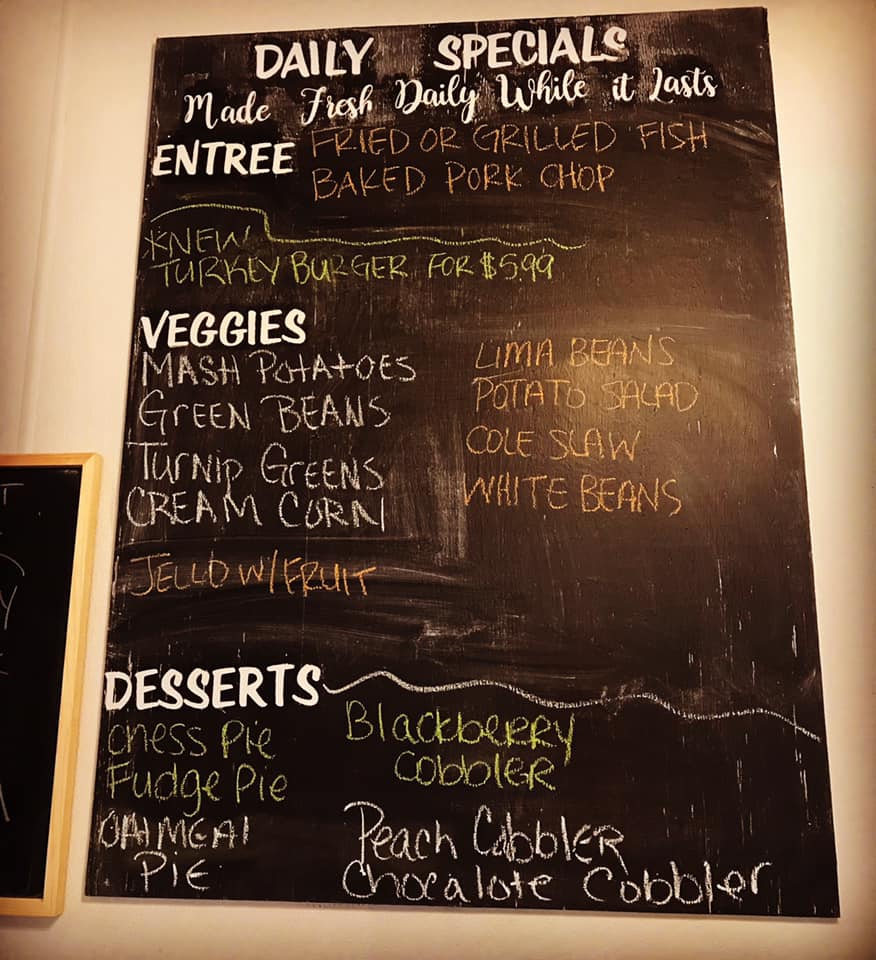 DAILY SPECIALS
Made Fresh Daily While it Lasts
ENTREE FRIED OR GRILLED FISH
BAKED PORK CHOP
*NEW
TURKEY BURGER FOR $5.99
VEGGIES
MASH POTATOES
GREEN BEANS
TURNIP GREENS
CREAM CORN
JELLO W/FRUIT
LIMA BEANS
POTATO SALAD
COLE SLAW
WHITE BEANS
DESSERTS
chess Pie
Fudge Pie
OATMEAL
PIE
BlackbeRRY
CobbLER
Peach CobbLER
Chocalote Cobbler